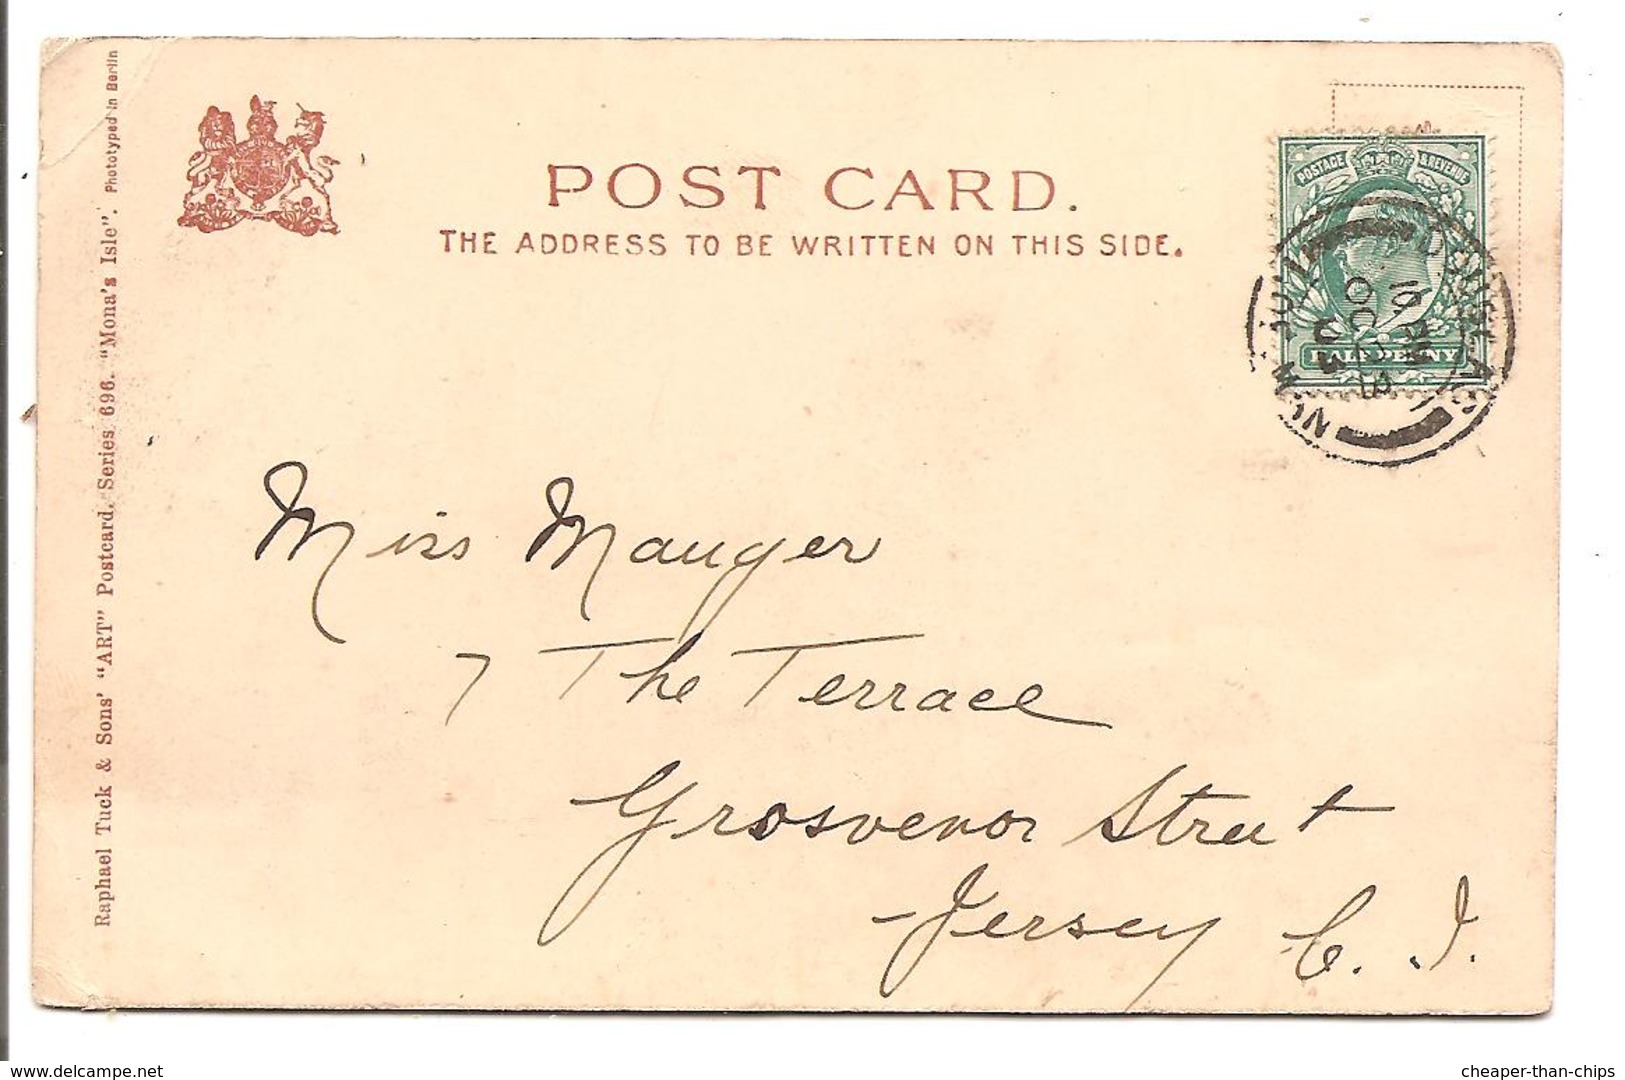 POST CARD.
THE ADDRESS TO BE WRITTEN ON THIS SIDE.
POSTAGE & REVENUE
HALFPENNY
Miss Mauger
7 The Terrace
Grosvenor Street
Jersey C. I.
Raphael Tuck & Sons' "ART" Postcard. Series 696. "Mona's Isle". Phototyped in Berlin
www.delcampe.net
cheaper-than-chips